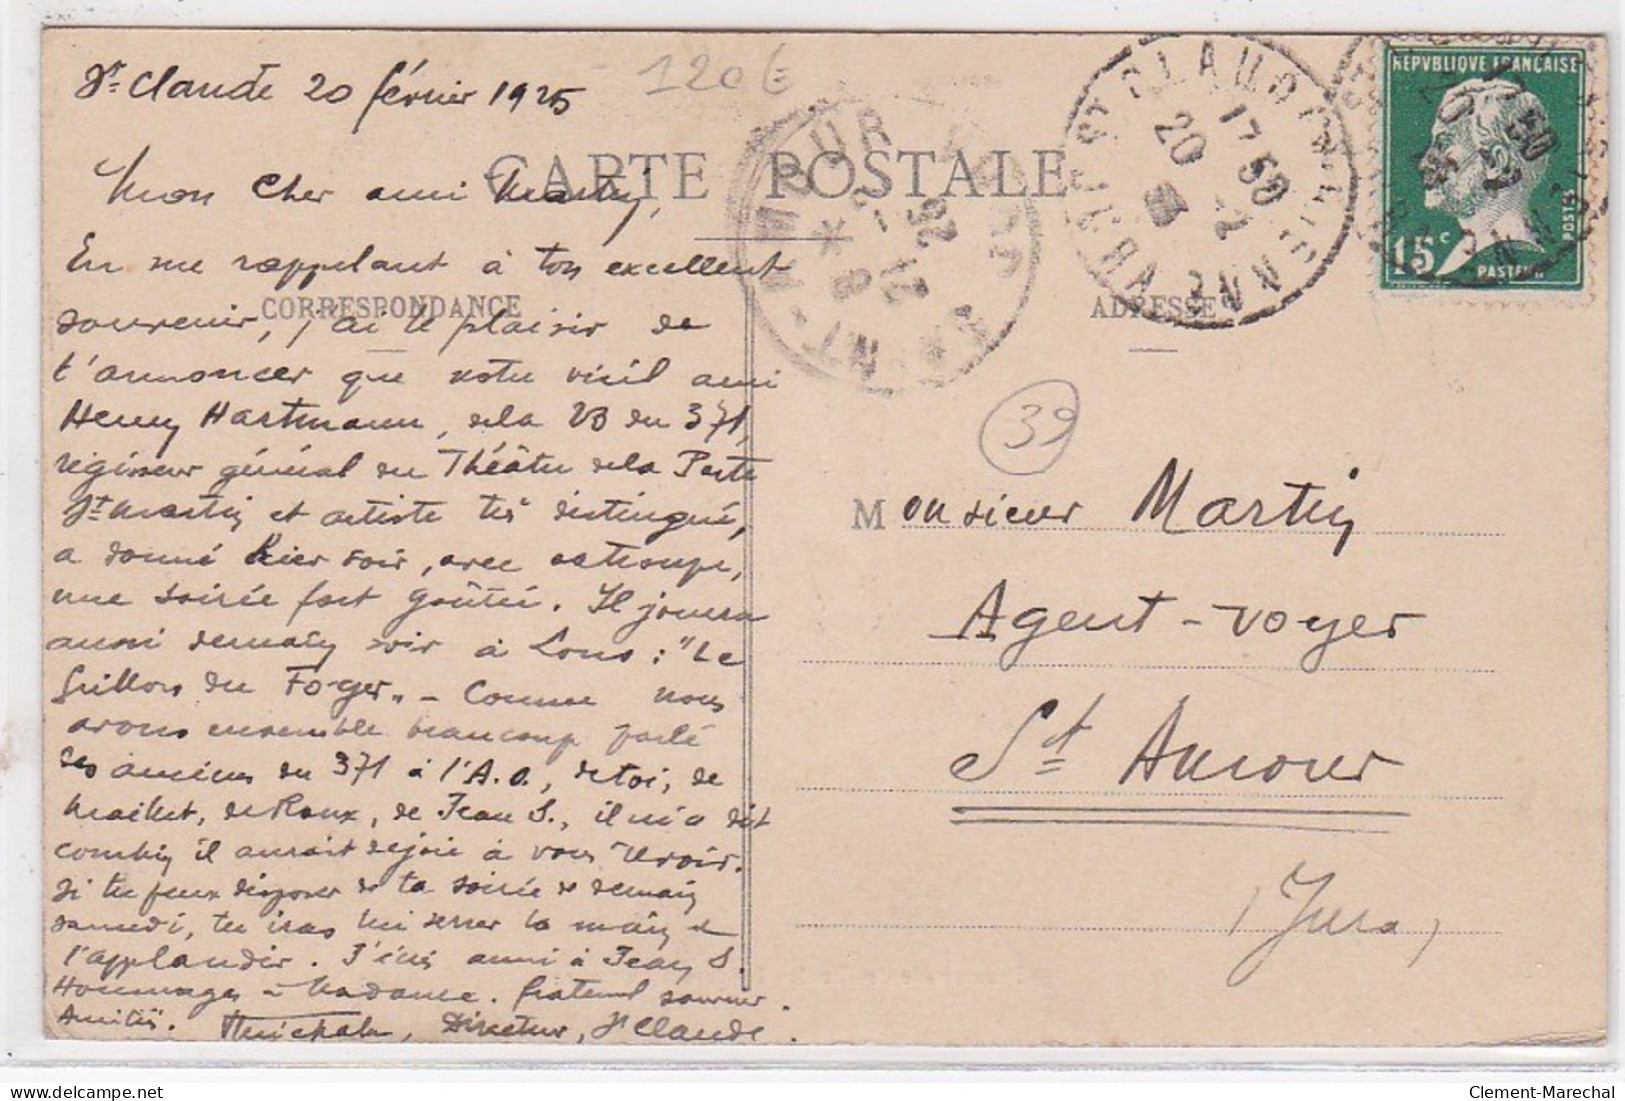 St Claude 20 février 1925
120€
CARTE POSTALE
Mon cher ami Martin,
En me rappelant à ton excellent
CORRESPONDANCE
souvenir, j'ai le plaisir de
t'annoncer que notre vieil ami
Henry Hartmann, de la 23 du 371,
régisseur général du Théâtre de la Porte
St Martin et artiste très distingué,
a donné hier soir, avec sa troupe,
une soirée fort goûtée. Il jouera
aussi demain soir à Lons : "Le
Grillon du Foyer" - Comme nous
avons ensemble beaucoup parlé
des anciens du 371 à l'A.O., de toi, de
Maillet, de Roux, de Jean S., il m'a dit
combien il aurait de joie à vous revoir.
Si tu peux disposer de ta soirée de demain
samedi, tu iras lui serrer la main et
l'applaudir. J'écris aussi à Jean S.
Hommages à Madame. fraternel souvenir.
Amitiés. Directeur, St Claude.
ST CLAUDE
17 50
20 -2
21 -2
25
REPUBLIQUE FRANÇAISE
15c
POSTES
PASTEUR
ADRESSE
39
Monsieur Martin
Agent-voyer
St Amour
(Jura)
Clement-Marechal